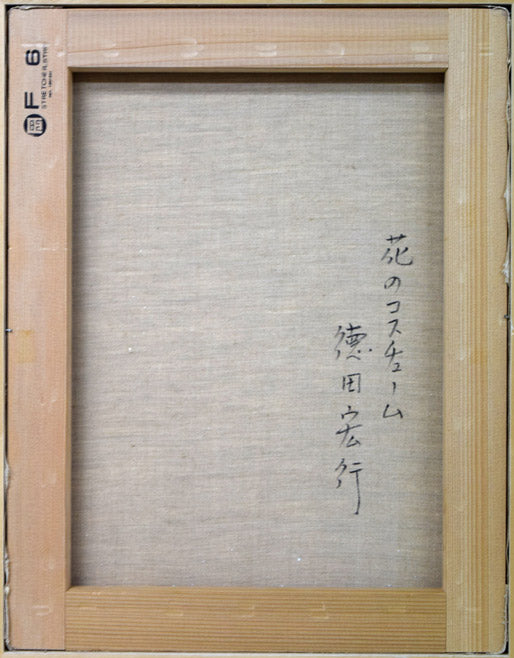 花のコスチューム
徳田宏行
F 6
STRETCHER STRIP